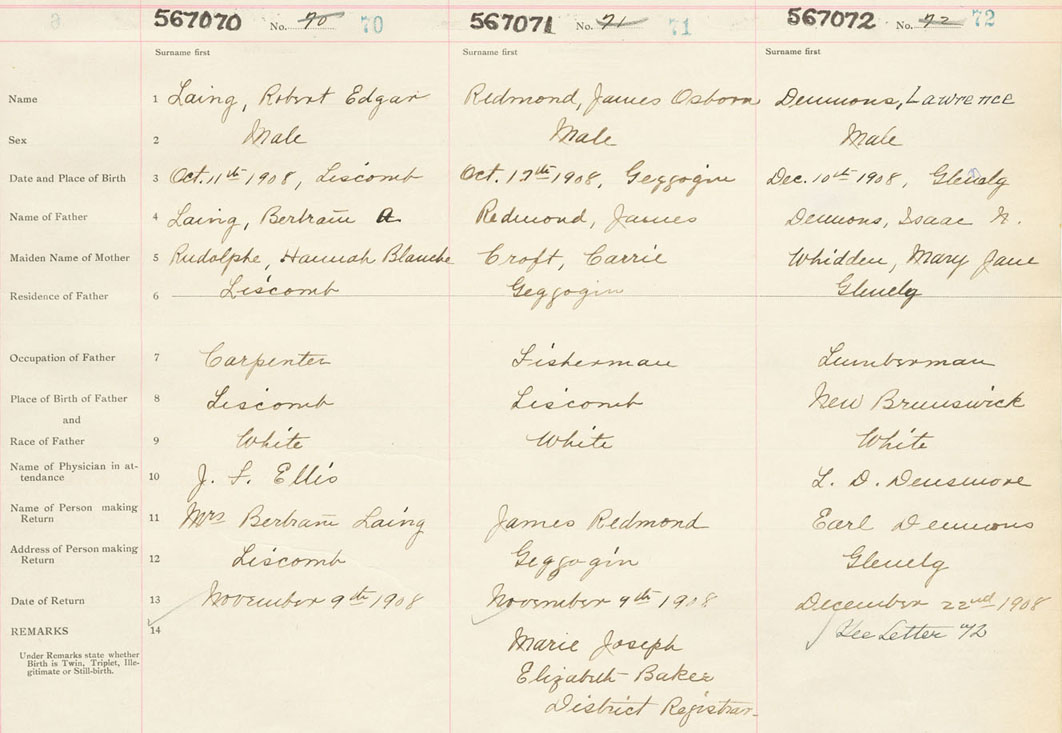 567070 No. 70 70 567071 No. 71 71 567072 No. 72 72
Surname first Surname first Surname first
Name 1 Laing, Robert Edgar Redmond, James Osborn Demmons, Lawrence
Sex 2 Male Male Male
Date and Place of Birth 3 Oct. 11th 1908, Liscomb Oct. 17th 1908, Geggogin Dec. 10th 1908, Glenelg
Name of Father 4 Laing, Bertram A Redmond, James Demmons, Isaac
Maiden Name of Mother 5 Rudolphe, Hannah Blanche Croft, Carrie Whidden, Mary Jane
Residence of Father 6 Liscomb Geggogin Glenelg
Occupation of Father 7 Carpenter Fisherman Lumberman
Place of Birth of Father 8 Liscomb Liscomb New Brunswick
and
Race of Father 9 White White White
Name of Physician in at-
tendance 10 J. F. Ellis L. D. Densmore
Name of Person making
Return 11 Mrs Bertram Laing James Redmond Earl Demmons
Address of Person making
Return 12 Liscomb Geggogin Glenelg
Date of Return 13 November 9th 1908 November 9th 1908 December 22nd 1908
REMARKS 14 See Letter 72
Marie Joseph
Under Remarks state whether
Birth is Twin, Triplet, Ille-
gitimate or Still-birth.
Elizabeth Baker
District Registrar